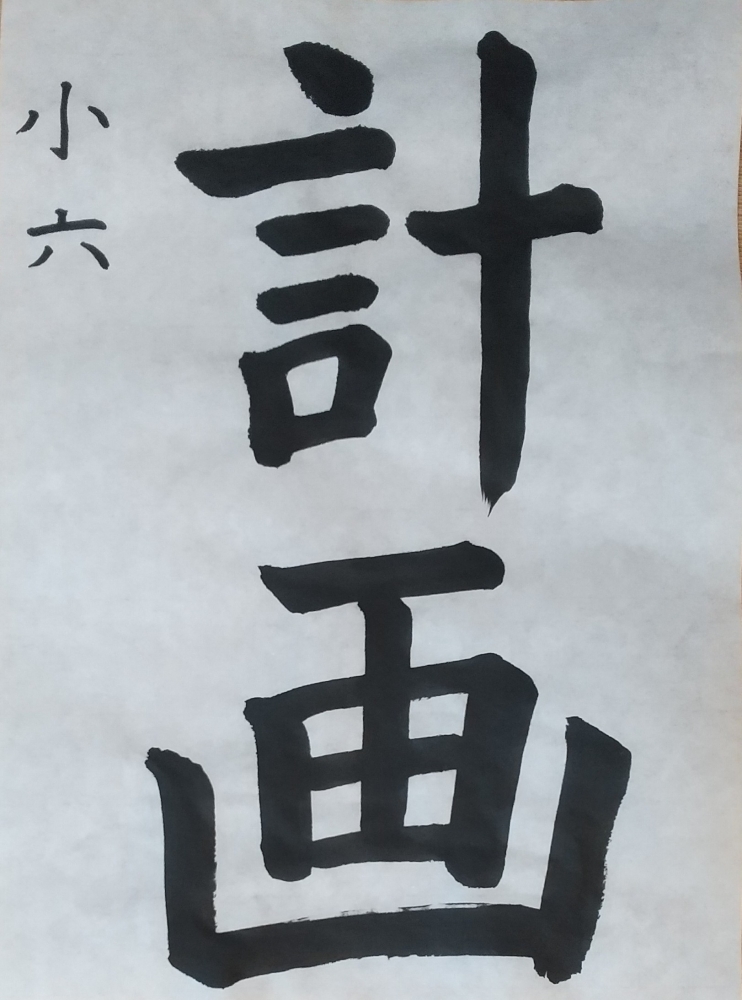 計画
小六